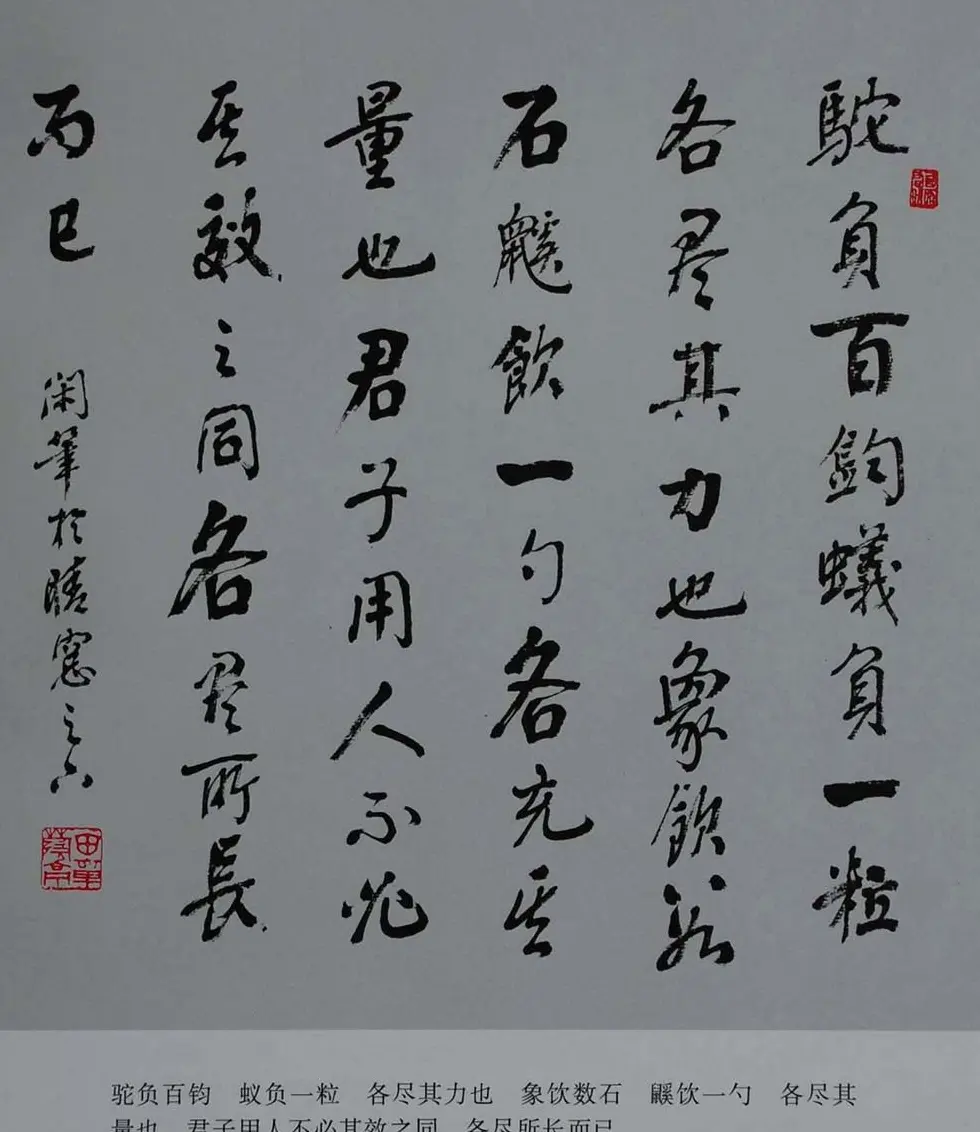 駝負百鈞蟻負一粒
各尽其力也象飲数
石鼷飲一勺各充其
量也君子用人不必
其效之同各尽所長
而已
閑筆於晴窓之下
驼负百钧 蚁负一粒 各尽其力也 象饮数石 鼷饮一勺 各尽其
量也 君子用人不必其效之同 各尽所长而已